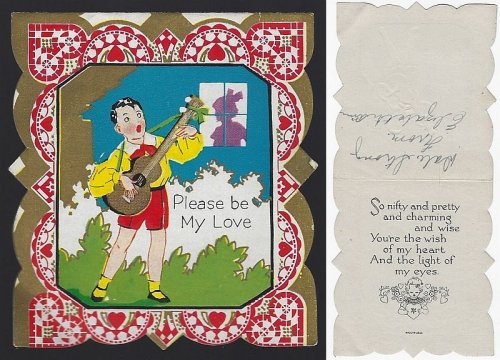 Please be
My Love
Dale Strong
From
So nifty and pretty
and charming
and wise
You're the wish
of my heart
And the light of
my eyes.